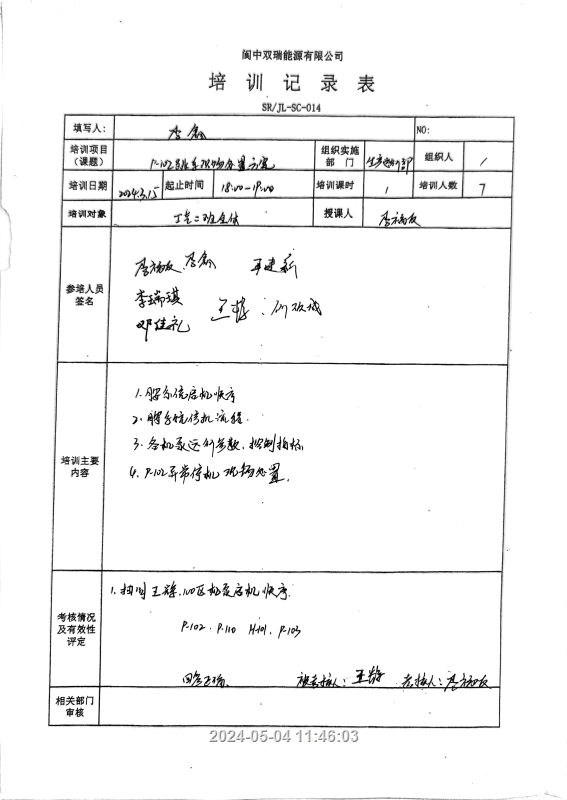 阆中双瑞能源有限公司
培训记录表
SR/JL-SC-014
填写人： 李 NO:
培训项目（课题） P-102 现场处置方案 组织实施部门 生产 部 组织人 /
培训日期 2024.3.15 起止时间 18:00-19:00 培训课时 1 培训人数 7
培训对象 丁 二班全体 授课人 李
参培人员签名
李 李 王建新
李瑞琪 王 何欢成
邓佳礼
培训主要内容
1. 脱 系统启机顺序
2. 脱 系统停机流程.
3. 各机泵运行参数、控制指标
4. P-102异常停机现场处置.
考核情况及有效性评定
1. 抽问王 .100区机泵启机顺序.
P-102、P-110 H-101、P-103
回答正确. 被考核人：王 考核人：李
相关部门审核
2024-05-04 11:46:03